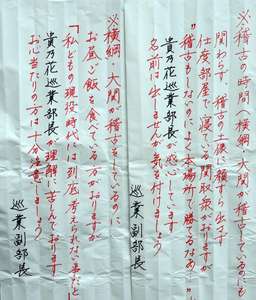 ※稽古の時間(横綱・大関が稽古しているのにも
関わらず 稽古の最後に顔すら出さず
仕度部屋で寝ている関取衆がおりますが
"稽古もしないのによく本場所で勝てるなあ"
貴乃花巡業部長が感心しています
名前は出しませんが気を付けましょう
巡業副部長
※横綱・大関が稽古をしているのに
お昼ご飯を食べている方がおりますが
「私どもの現役時代には到底考えられない事だと」
貴乃花巡業部長が理解に苦しんでおります
お心当たりの方は十分注意しましょう
巡業副部長